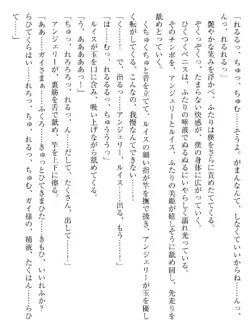 れるるっ、ちゅっ、ちゅむ……そうよぉ、がまんなんてしなくていいからねぇ……ん
っ、れるるっ」
艶やかな笑みを浮かべ、ふたりは僕をさらに
ずっと尽くしてくれる。ふたりの快感が、僕の身体に広がっていく。
ひくつくペニスは、ふたりの唾液でぬるぬるにいやらしく濡れ光っていた。
そのチンポを、アンジェリーとルイス、ふたりの美姫が舐め回し、先走りを
舐めとっていく。
くちゅくちゅと音を立て、ルイスの細い指が竿を撫で扱き、アンジェリーが玉を優し
く転がしてくる。こんなの、我慢できない。
「くっ……で、出るっ……アンジェリー、ルイス……出る、もうっ……」
「れるるっ、ちゅっ、ちゅううううっ」
「うああああっ……」
ルイスが玉を口に含み、吸い上げながら舐めてくる。
「ちゅっ、れろれろ、れるっ、ん……だして、たくさん、出して……」
アンジェリーが、裏筋を舌で舐め、竿を上下に擦る。
「あああぁぁっ……」
らひてくらはい……れろれろっ、ちゅっ、ちゅむっ、ガイ様の、精液、たくはん……らひ
て……」